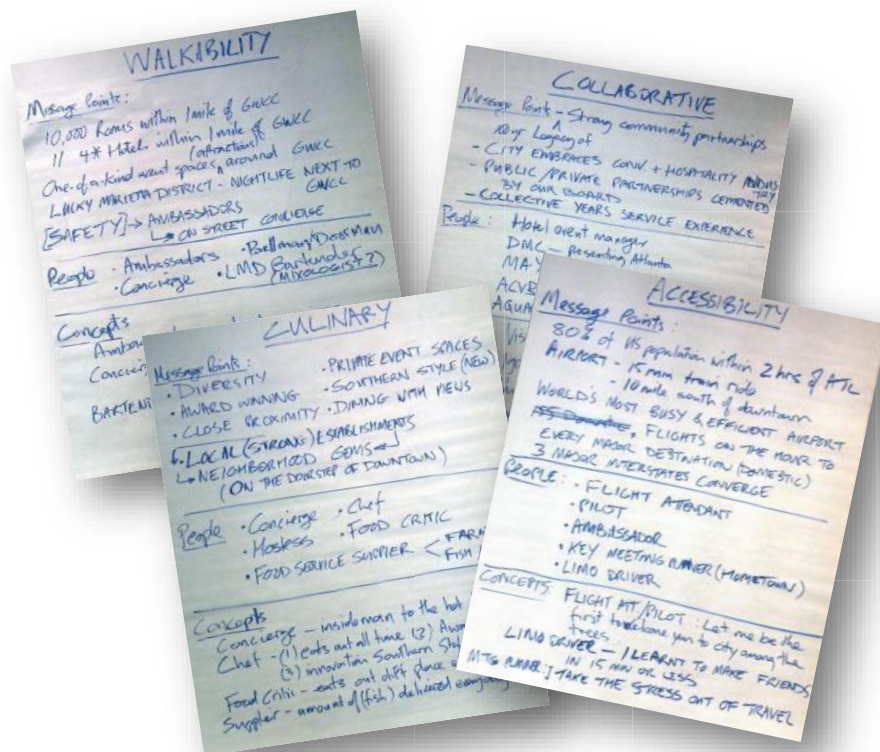 WALKABILITY
Message Points:
10,000 Rooms within 1 mile of GWCC
11 4* Hotels within 1 mile of GWCC
(attractions)
One-of-a-kind event spaces around GWCC
LUCKY MARIETTA DISTRICT - NIGHTLIFE NEXT TO
GWCC
[SAFETY] → AMBASSADORS
↳ ON STREET CONCIERGE
People • Ambassadors • Bellman/Doorman
• Concierge • LMD Bartender
(MIXOLOGIST?)
Concepts
COLLABORATIVE
Message Points - Strong community partnerships
Legacy of
- CITY EMBRACES CONV. + HOSPITALITY
- PUBLIC/PRIVATE PARTNERSHIPS CEMENTED
BY OUR BOARDS
- COLLECTIVE YEARS SERVICE EXPERIENCE
People: Hotel event manager
DMC - presenting Atlanta
CULINARY
Message Points: • PRIVATE EVENT SPACES
• DIVERSITY • SOUTHERN STYLE (NEW)
• AWARD WINNING • DINING WITH VIEWS
• CLOSE PROXIMITY
• LOCAL (STRONG) ESTABLISHMENTS
↳ NEIGHBORHOOD GEMS
(ON THE DOORSTEP OF DOWNTOWN)
People • Concierge • Chef
• Hostess • FOOD CRITIC
• FOOD SERVICE SUPPLIER < FARM
FISH
Concepts
Concierge - inside man to the hot
Chef - (1) eats out all time (2)
(3) innovation Southern
Food Critic - eats out diff place
Supplier - amount of (fish) delivered everyday
ACCESSIBILITY
Message Points:
80% of US population within 2 hrs of ATL
AIRPORT - 15 min train ride
- 10 mile south of downtown
WORLD'S MOST BUSY & EFFICIENT AIRPORT
, FLIGHTS ON THE HOUR TO
EVERY MAJOR DESTINATION (DOMESTIC)
3 MAJOR INTERSTATES CONVERGE
PEOPLE: • FLIGHT ATTENDANT
• PILOT
• AMBASSADOR
• KEY MEETING PLANNER (HOMETOWN)
• LIMO DRIVER
CONCEPTS: FLIGHT ATT/PILOT: Let me be the
first to welcome you to city among the
trees
LIMO DRIVER - I LEARNT TO MAKE FRIENDS
IN 15 MIN OR LESS
MTG PLANNER: TAKE THE STRESS OUT OF TRAVEL